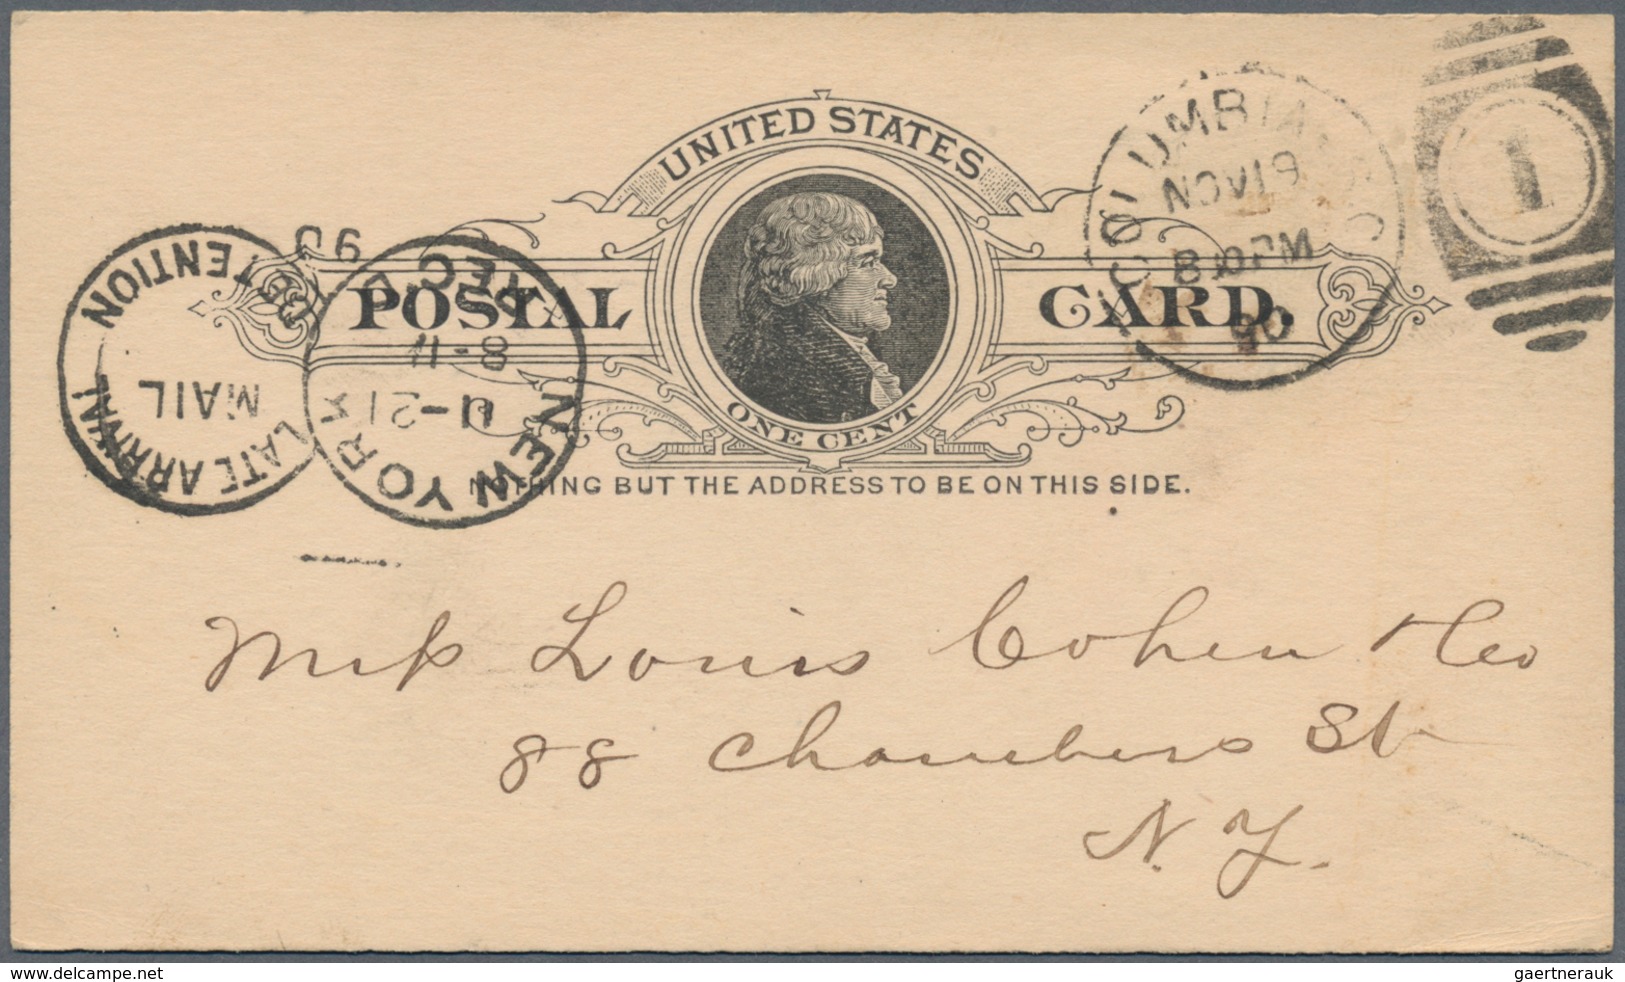 UNITED STATES
POSTAL CARD.
ONE CENT
NOTHING BUT THE ADDRESS TO BE ON THIS SIDE.
COLUMBIA S.C.
NOV 19
PM
90
1
DETENTION
MAIL
LATE ARRIVAL
90
REC'D
8-11
11-21
NEW YORK
Louis Cohen & Co
88 Chambers St
N. Y.
www.delcampe.net
gaertnerauk